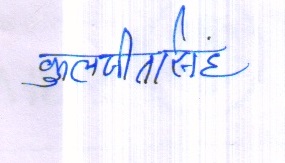 कुलजीतसिंह